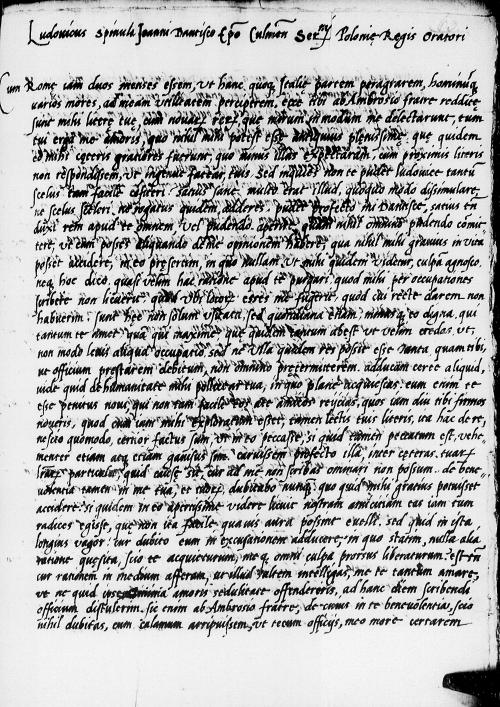 Ludovicus Spinula Joanni Dantisco Epo Culmen Ser.mi Polonię Regis Oratori
Cum Romę iam duos menses essem, ut hanc quoq; Italię partem peragrarem, hominumq;
varios mores, ad meam utilitatem perciperem. ecce tibi ab Ambrosio fratre redditę
sunt mihi literę tuę, cum novarum rerum, quę mirum in modum me delectarunt, tum
tui erga me amoris, quo nihil mihi potest esse antiquius plenissimę. quę quidem
eo mihi cęteris gratiores fuerunt, quo minus illas expectaram, cum proximis literis
non respondissem, ut ingenue fatear, tuis. Sed non te pudet ludovice tantum
scelus tam facile satius sane multo erat illud, quoquo modo dissimulare,
ne scelus sceleri, ne rogatus quidem, adderes. pudet profecto mi Dantisce, satius tn
duxi rem apud te omnem vel pudendo aperire, quam nihil omnino pudendo comit
tere, ut eum posses aliquando de me opinionem habere, qua nihil mihi gravius in vita
posset accidere, in eo presertim, in quo nullam, ut mihi quidem videtur, culpam agnosco.
neq; hoc dico, quasi velim hac ratione apud te purgari, quod mihi per occupationes
scribere non licuerit, quod ubi locorum esses me fugerit, quod cui recte darem non
habuerim: sunt hęc non solum usitata, sed quotidiana etiam: meq; eo digna, qui
tantum te amet, quam qui maxime, quę quidem tantum abest ut velim credas, ut,
non modo levis aliqua occupatio, sed ne ulla quidem res possit esse tanta, quam tibi,
ut officium prestarem debitum, non omnino pretermitterem. adducam certe aliquid,
vide quid de humanitate mihi pollicear tua, in quo plane acquiescas: eum enim te
esse penitus novi, qui non tam facile eos ab amicos reijcias, quos iam diu tibi firmos
noveris, quod cum iam mihi exploratum esset, tamen lectis tuis literis, ita hac de re,
nescio quomodo, certior factus sum, ut in eo peccasse, si quid tamen peccatum est, vehe,
menter etiam atq; etiam gavisus sim. caruissem profecto illa, inter cęteras tuarum
lrarum particula: quid causę sit cur ad me non scribas ominari non possum. de bene,
volentia tamen in me tua, et dubitabo nunquam: quo quid mihi gratius potuisset
accidere: siquidem in eo apertissime videre licuit nostram amicitiam eas iam tum
radices egisse, quę non ita facile quavis aura possint evelli. Sed quid in ista
longius vagor: cur dubito eum in excusationem adducere, in quo statim, nulla alia
ratione quęsita, scio te acquieturum, meq; omni culpa prorsus liberaturum: est tn
cur tandem in medium afferam, ut illud saltem intelligas, me te tantum amare,
ut ne quid amoris sedulitate offenderetis, ad hanc diem scribendi
officium distulerim. sic enim ab Ambrosio fratre, de cuius in te benevolentia, scio
nihil dubitas, cum calamum arripuissem, ut tecum officijs, meo more certarem